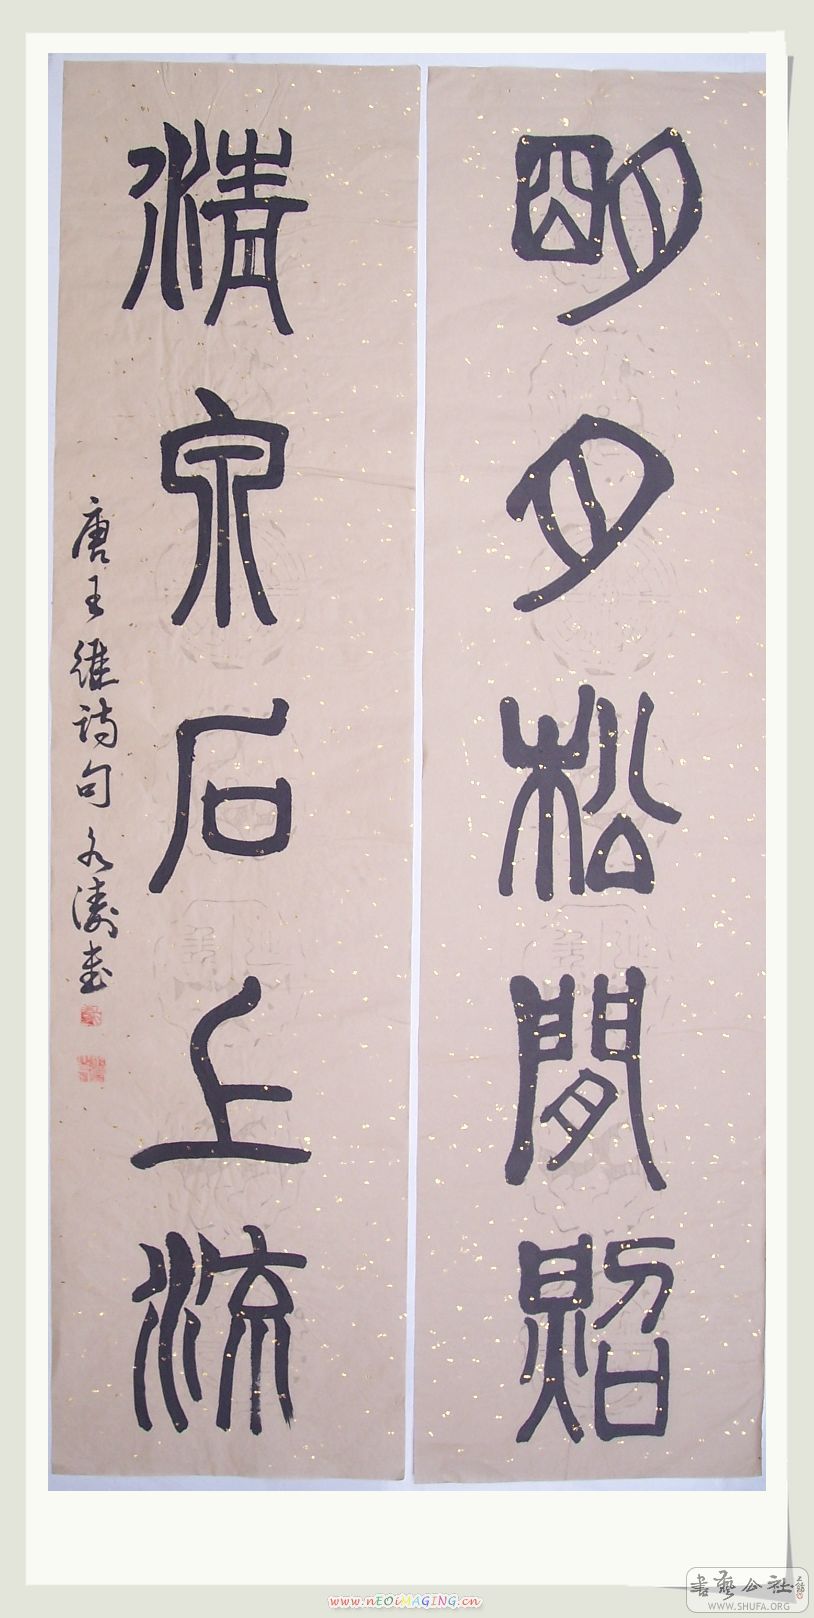 明月松閒照
清泉石上流
唐王維诗句永濤书
書藝公社
WWW.SHUFA.ORG
www.nEOiMAGING.cn